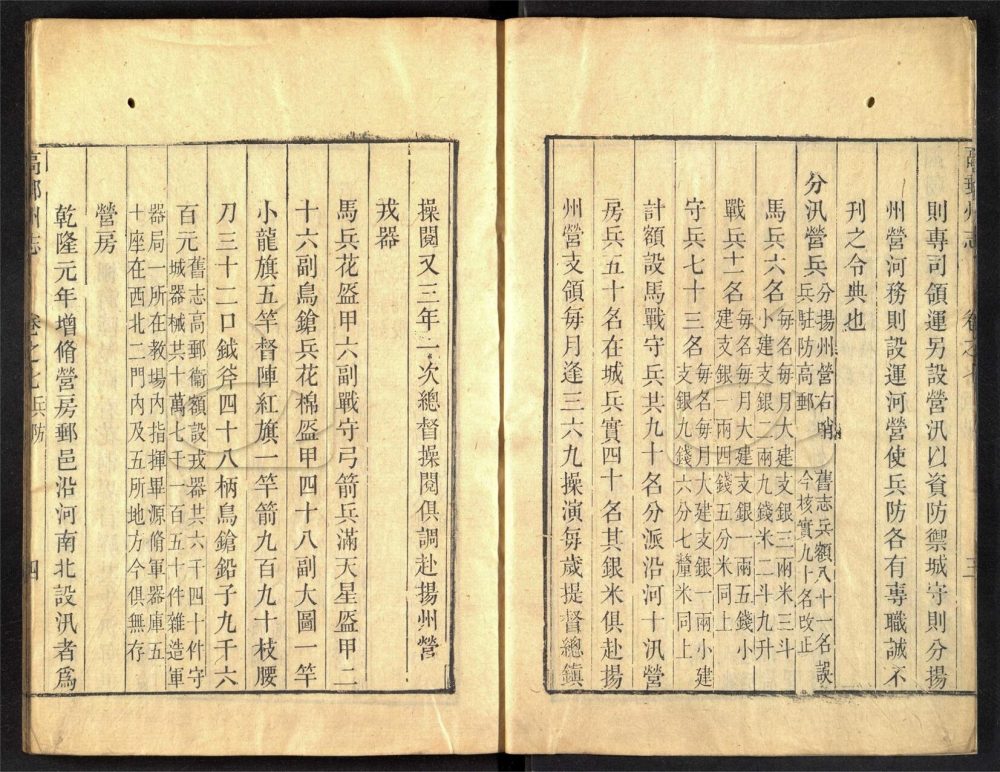 則專司領運另設營汛以資防禦城守則分揚
州營河務則設運河營使兵防各有專職誠不
刊之令典也
分汛營兵
分揚州營右哨
兵駐防高郵
舊志兵額八十一名誤
今核實九十名改正
馬兵六名
每名每月大建支銀三兩米三斗
小建支銀二兩九錢米二斗九升
戰兵十一名
每名每月大建支銀一兩五錢小
建支銀一兩四錢五分米同上
守兵七十三名
每名每月大建支銀一兩小建
支銀九錢六分七釐米同上
計額設馬戰守兵共九十名分派沿河十汛營
房兵五十名在城兵實四十名其銀米俱赴揚
州營支領每月逢三六九操演每歲提督總鎮
高郵州志
卷之七
三
操閱又三年一次總督操閱俱調赴揚州營
戎器
馬兵花盔甲六副戰守弓箭兵滿天星盔甲二
十六副鳥鎗兵花棉盔甲四十八副大圖一竿
小龍旗五竿督陣紅旗一竿箭九百九十枝腰
刀三十二口鉞斧四十八柄鳥鎗鉛子九千六
百元
舊志高郵衞額設戎器共六千四十件守
城器械共十萬七千一百五十件雜造軍
器局一所在教場內指揮畢源脩軍器庫五
十座在西北二門內及五所地方今俱無存
營房
乾隆元年增脩營房郵邑沿河南北設汛者爲
高郵州志
卷之七兵防
四